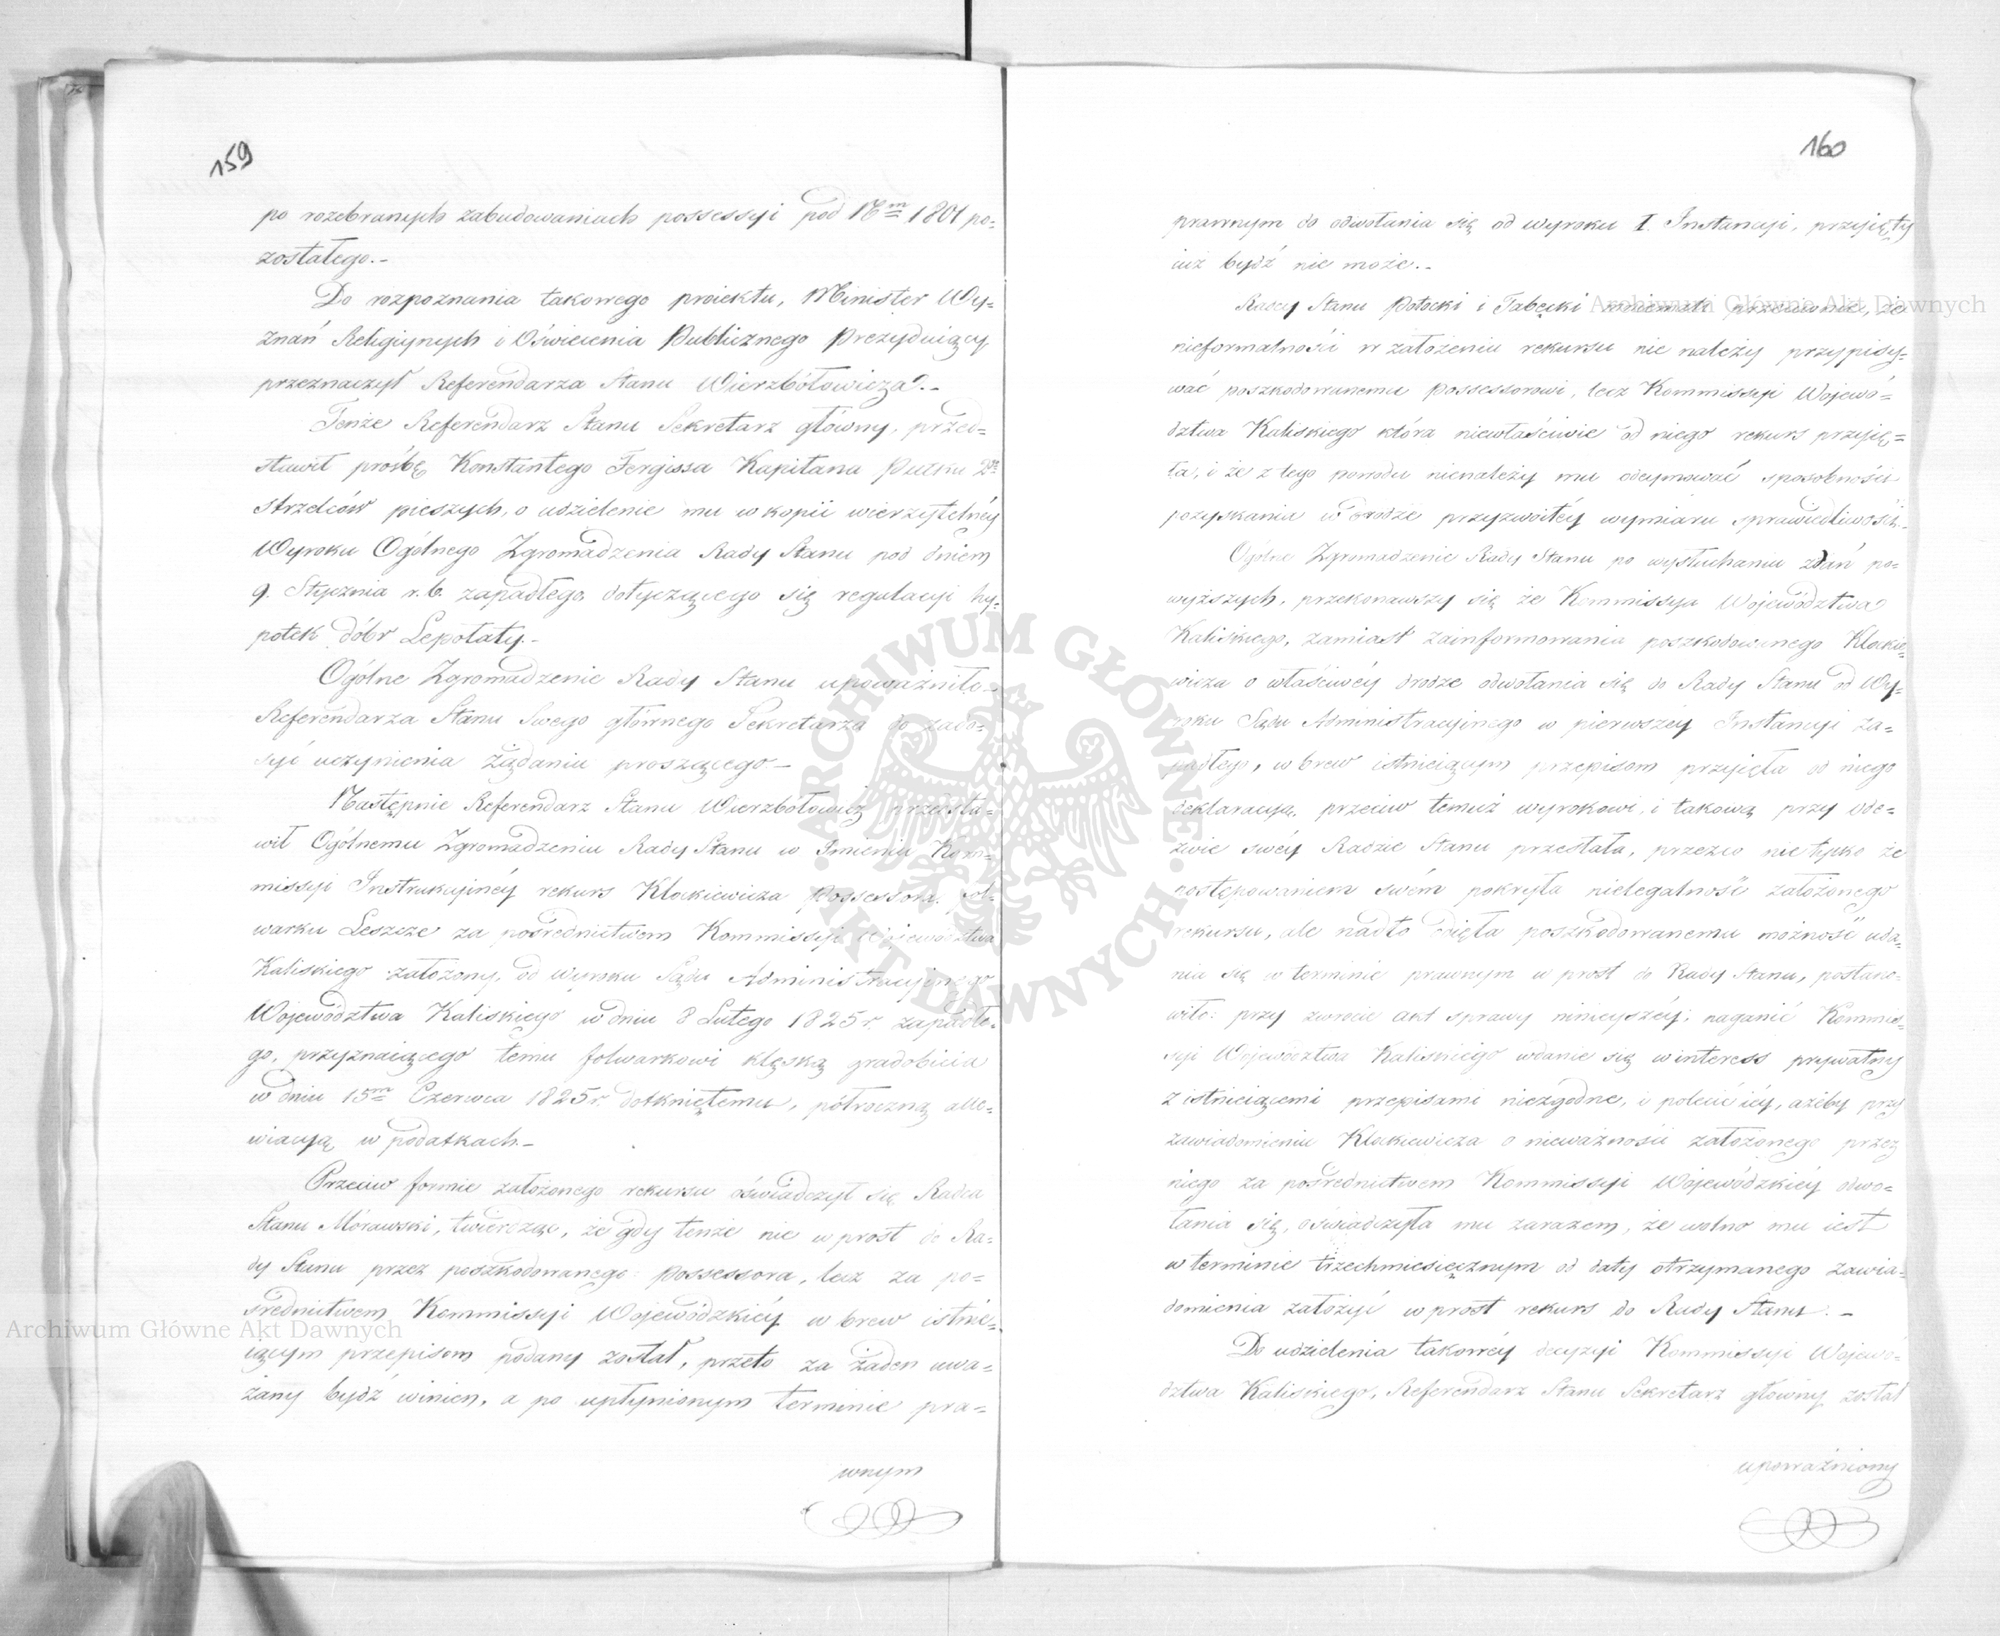 159
po rozebranych zabudowaniach possessyi pod Nem 1801 po-
zostałego.-
Do rozpoznania takowego proiektu, Minister Wy-
znań Religiynych i Oświecenia Publicznego Prezyduiący
przeznaczył Referendarza Stanu Wierzbołowicza.-
Tenże Referendarz Stanu Sekretarz główny, przed-
stawił prośbę Konstantego Fergissa Kapitana Pułku 2go
strzelców pieszych, o udzielenie mu w kopii wierzytelnéy
Wyroku Ogólnego Zgromadzenia Rady Stanu pod dniem
9. Stycznia r. b. zapadłego, dotyczącego się regulacyi hy-
potek dóbr Lepołaty.-
Ogólne Zgromadzenie Rady Stanu upoważniło
Referendarza Stanu Swego głównego Sekretarza do zado-
syć uczynienia żądaniu proszącego-
Następnie Referendarz Stanu Wierzbołowicz przedsta-
wił Ogólnemu Zgromadzeniu Rady Stanu w Imieniu Kom-
missyi Instrukcyinéy rekurs Klockiewicza Possessora fol-
warku Leszcze za pośrednictwem Kommissyi Województwa
Kaliskiego założony, od wyroku Sądu Administracyjnego
Województwa Kaliskiego w dniu 8 Lutego 1825 r. zapadłe-
go, przyznaiącego temu folwarkowi klęską gradobicia
w dniu 15m Czerwca 1825 r. dotkniętemu, półroczną alle-
wiacyą w podatkach.-
Przeciw formie założonego rekursu oświadczył się Radca
Stanu Morawski, twierdząc, że gdy tenże nie w prost do Ra-
dy Stanu przez poszkodowanego Possessora, lecz za po-
średnictwem Kommissyi Wojewódzkiéy w brew istnie-
iącym przepisom podany został, przeto za żaden uwa-
żany bydź winien, a po upłynionym terminie pra-
wnym
160
prawnym do odwołania się od wyroku I. Instancyi, przyięty
iuż bydź nie może.-
Radcy Stanu Potocki i Tabęcki mniemali przeciwnie, że
nieformalności w założeniu rekursu nie należy przypisy-
wać poszkodowanemu Possessorowi, lecz Kommissyi Wojewó-
dztwa Kaliskiego która niewłaściwie od niego rekurs przyię-
ła, i że z tego powodu nienależy mu odeymować sposobności
pozyskania w drodze przyzwoitéy wymiaru sprawiedliwości.-
Ogólne Zgromadzenie Rady Stanu po wysłuchaniu zdań po-
wyższych, przekonawszy się że Kommissya Województwa
Kaliskiego, zamiast zainformowania poszkodowanego Klockie-
wicza o właściwéy drodze odwołania się do Rady Stanu od Wy-
roku Sądu Administracyinego w pierwszéy Instancyi za-
padłego, w brew istnieiącym przepisom przyięła od niego
deklaracyą, przeciw temuż wyrokowi, i takową przy ode-
zwie swéy Radzie Stanu przesłała, przezco nie tylko że
postępowaniem swém pokryła nielegalność założonego
rekursu, ale nadto odięła poszkodowanemu możność uda-
nia się w terminie prawnym w prost do Rady Stanu, postano-
wiło: przy zwrocie akt sprawy niniéyszéy, naganić Kommis-
syi Województwa Kaliskiego wdanie się w interess prywatny
z istnieiącemi przepisami niezgodne, i polecić iéy, ażeby przy
zawiadomieniu Klockiewicza o nieważności założonego przez
niego za pośrednictwem Kommissyi Wojewódzkiéy odwo-
łania się, oświadczyła mu zarazem, że wolno mu iest
w terminie trzechmiesięcznym od daty otrzymanego zawia-
domienia założyć w prost rekurs do Rady Stanu.-
Do udzielenia takowéy decyzyi Kommissyi Wojewó-
dztwa Kaliskiego, Referendarz Stanu Sekretarz główny został
upoważniony
Archiwum Główne Akt Dawnych
Archiwum Główne Akt Dawnych
ARCHIWUM GŁÓWNE AKT DAWNYCH